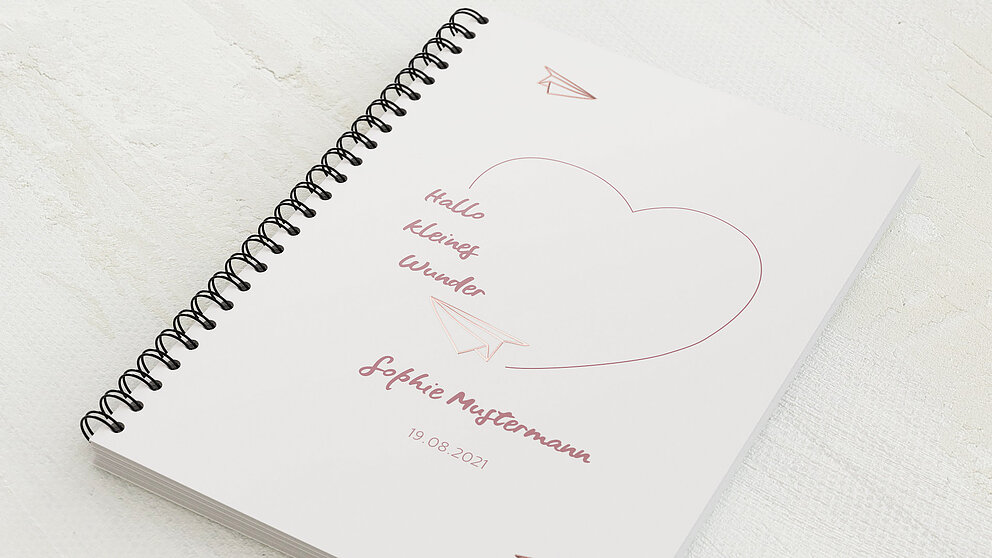 Hallo
kleines
Wunder
Sophie Mustermann
19.08.2021